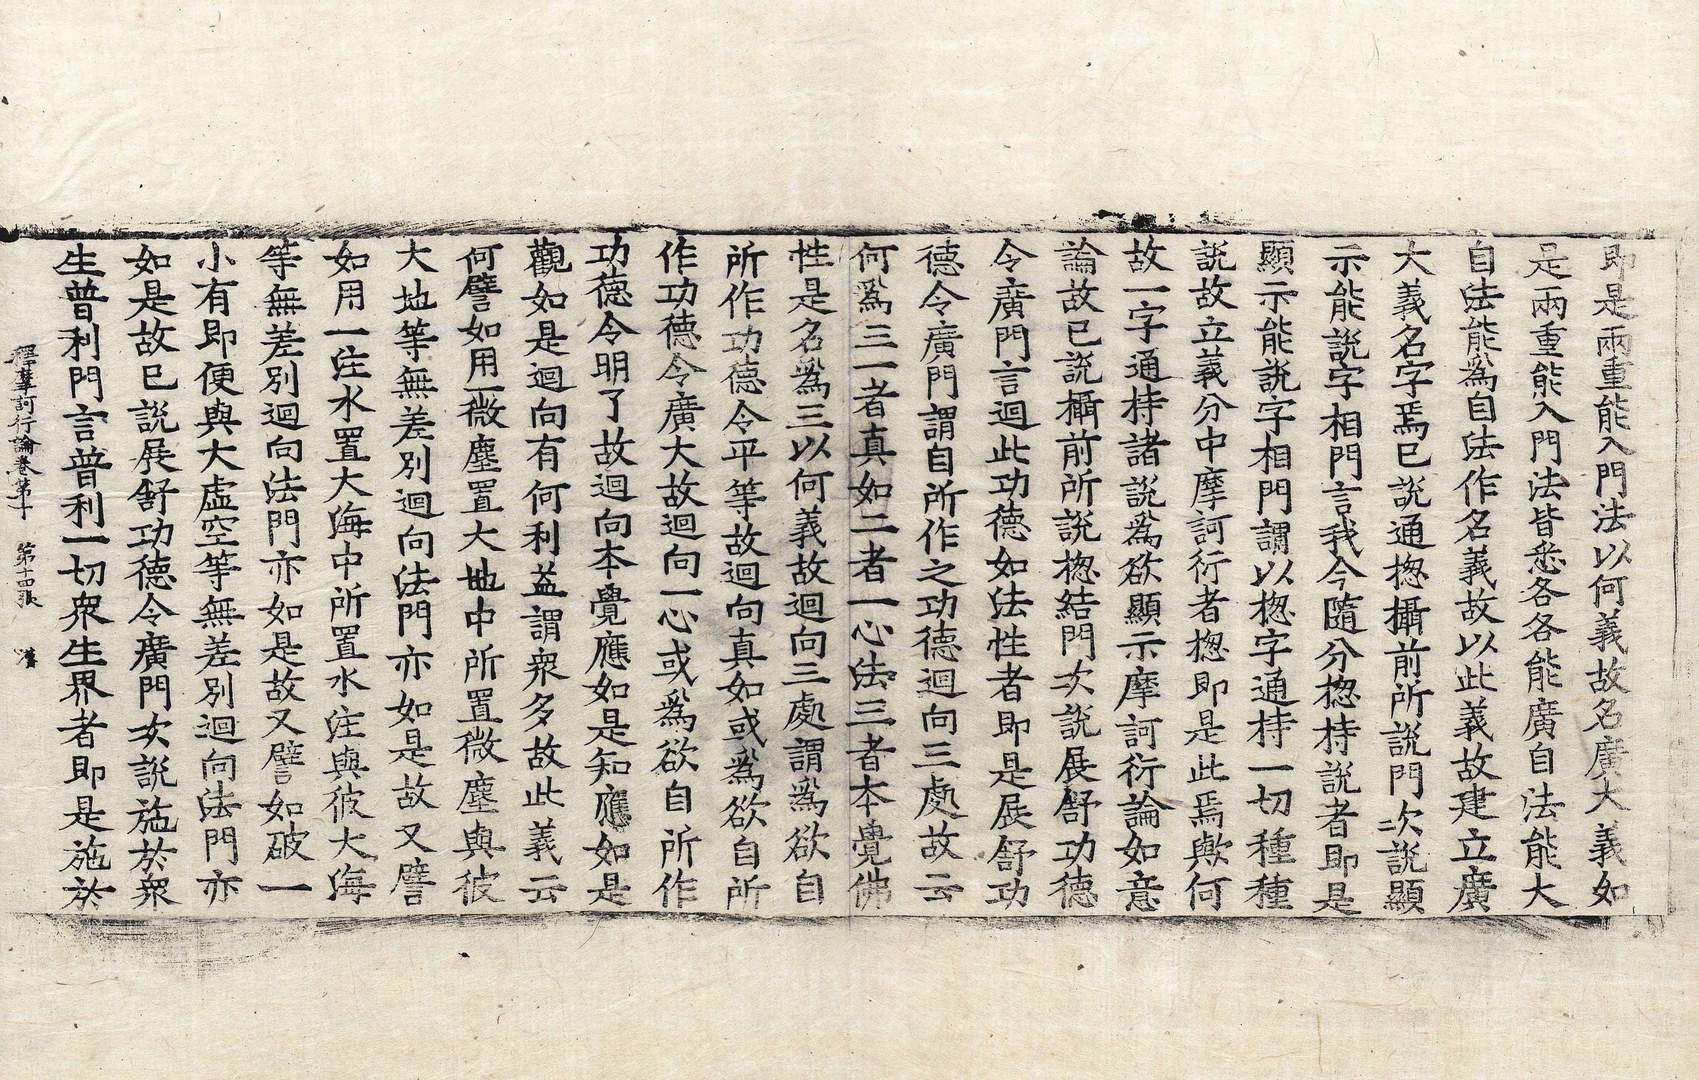 即是兩重能入門法以何義故名廣大義如
是兩重能入門法皆悉各各能廣自法能大
自法能爲自法作名義故以此義故建立廣
大義名字焉已說通揔攝前所說門次說顯
示能說字相門言我今隨分揔持說者即是
顯示能說字相門謂以揔字通持一切種種
說故立義分中摩訶衍者揔即是此焉歟何
故一字通持諸說爲欲顯示摩訶衍論如意
論故已說攝前所說揔結門次說展舒功德
令廣門言迴此功德如法性者即是展舒功
德令廣門謂自所作之功德迴向三處故云
何爲三一者真如二者一心法三者本覺佛
性是名爲三以何義故迴向三處謂爲欲自
所作功德令平等故迴向真如或爲欲自所
作功德令廣大故迴向一心或爲欲自所作
功德令明了故迴向本覺應如是知應如是
觀如是迴向有何利益謂衆多故此義云
何譬如用一微塵置大地中所置微塵與彼
大地等無差別迴向法門亦如是故又譬
如用一注水置大海中所置水注與彼大海
等無差別迴向法門亦如是故又譬如破一
小有即便與大虛空等無差別迴向法門亦
如是故已說展舒功德令廣門次說施於衆
生普利門言普利一切衆生界者即是施於
釋摩訶衍論卷第十　第十四張